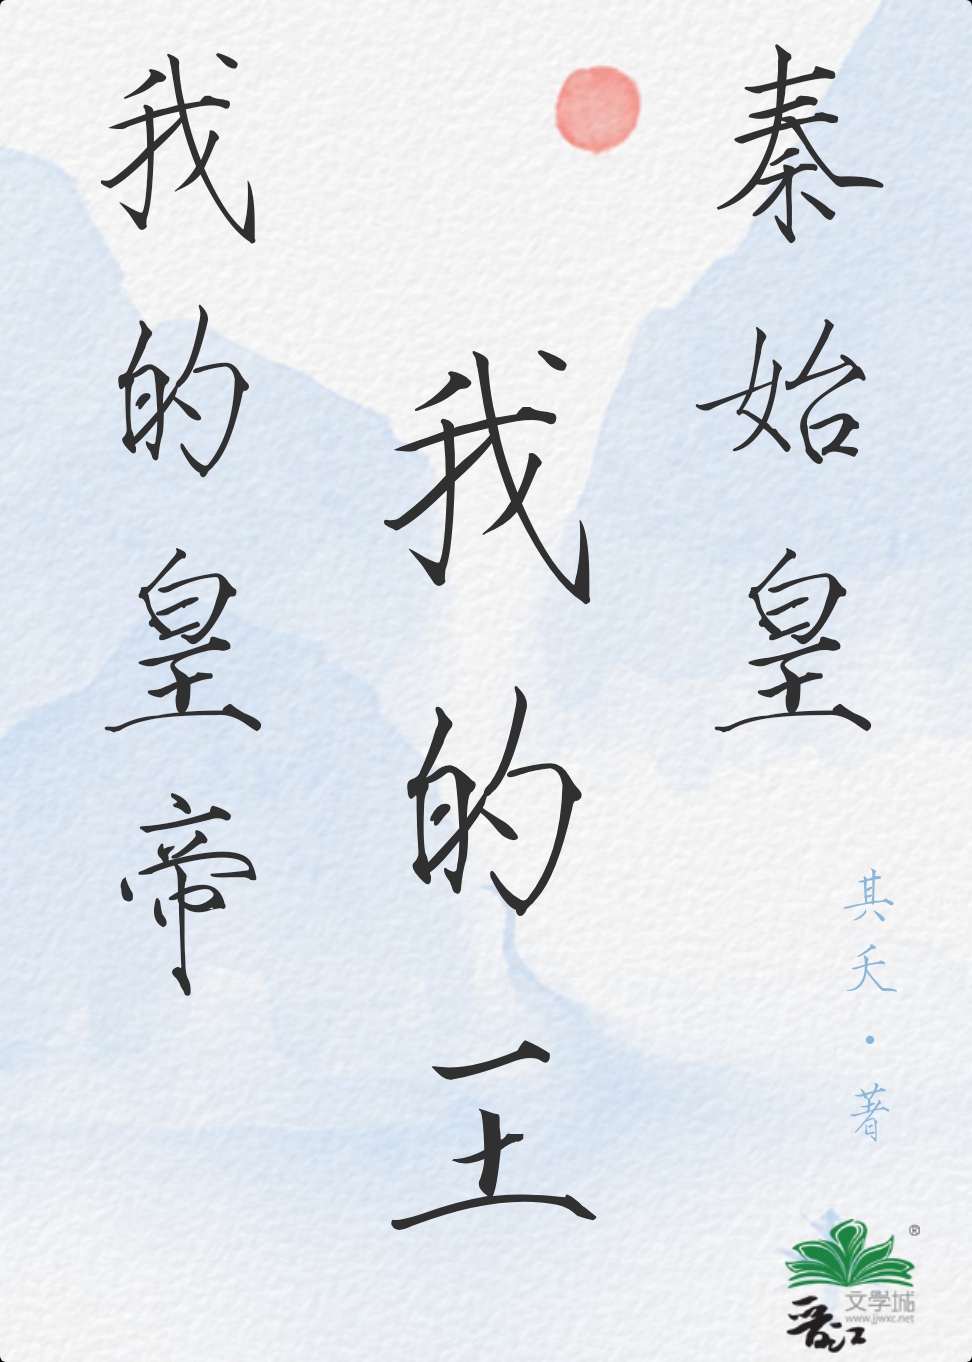 秦始皇
我的王
我的皇帝
其夭·著
®
文学城
www.jjwxc.net
晋江